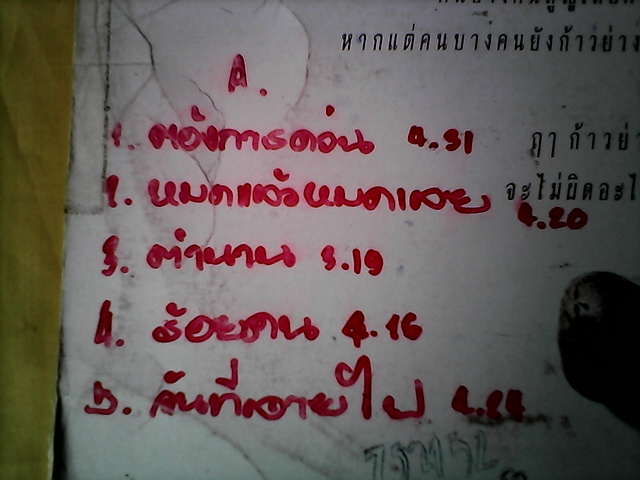 หากแต่คนบางคนยังก้าวย่าง
A.
1. ต้องการด่วน 4.31
ฤๅ ก้าวย่
2. หมดแล้วหมดเลย 4.20
จะไม่ผิดอะไ
3. ตำนาน 3.19
4. ร้อยคน 4.16
5. วันที่หายไป